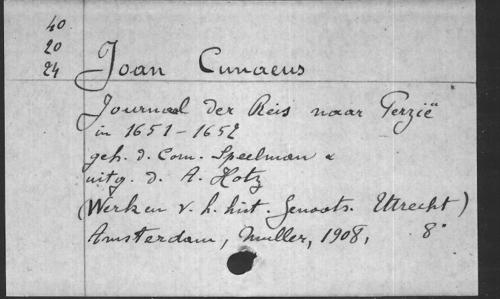 40
20
24
Joan Cunaeus
Journaal der Reis naar Perzië
in 1651-1652
geh. d. Corn. Speelman &
uitg. d. A. Hotz
(Werken v. h. hist. Genoots. Utrecht)
Amsterdam, Muller, 1908, 8°